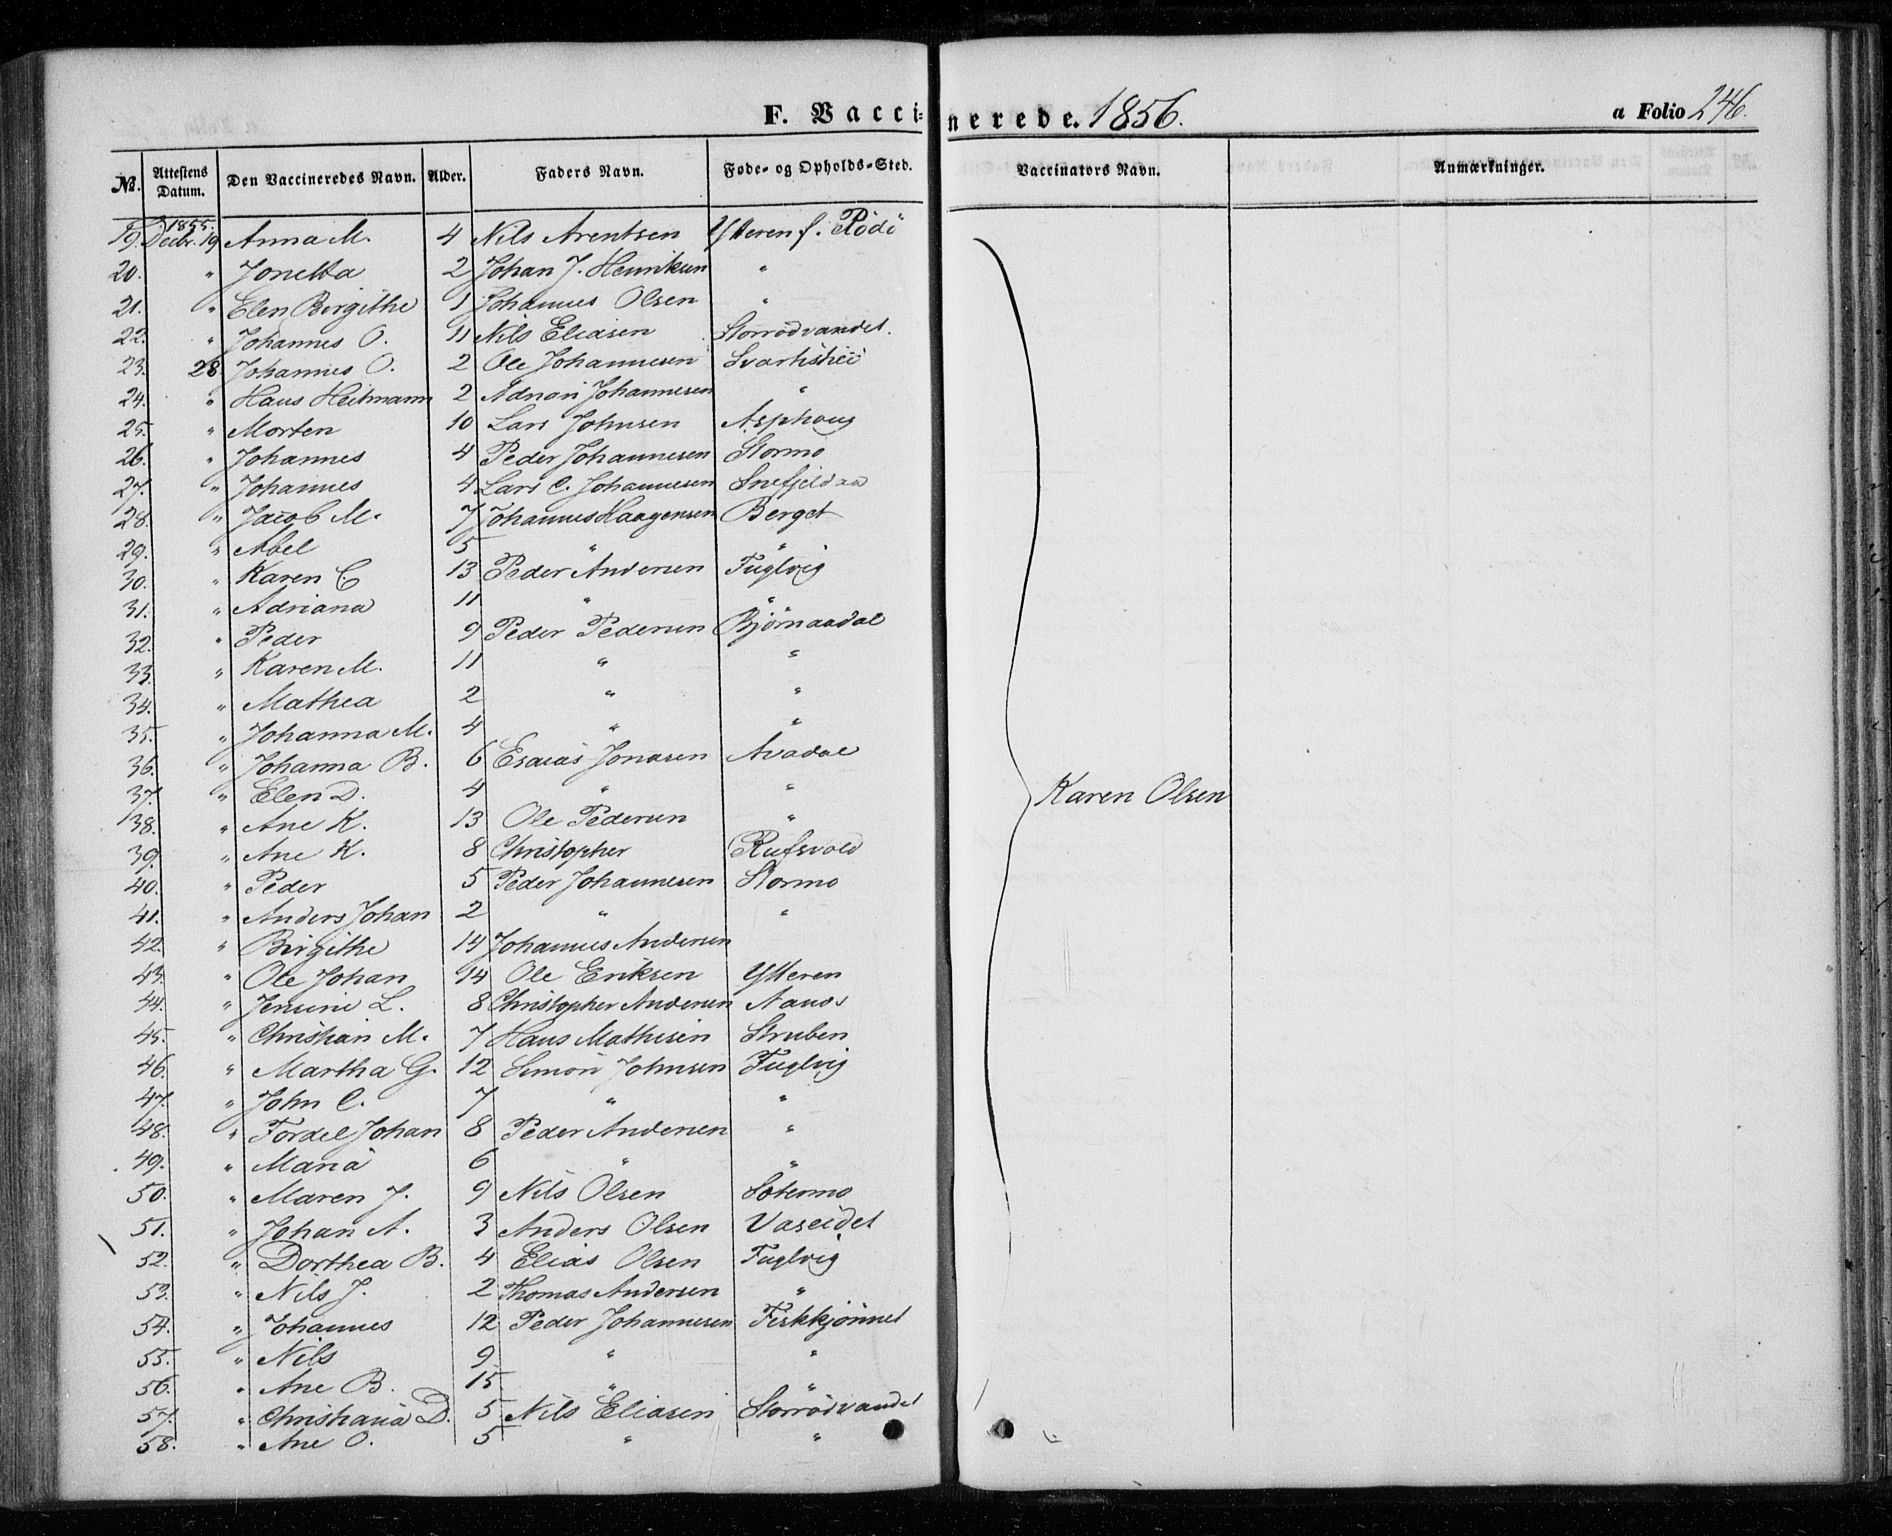 F. Vaccinerede. 1856. a Folio 246.
No. Attestens Datum. Den Vaccineredes Navn. Alder. Faders Navn. Føde- og Opholds-Sted. Vaccinators Navn. Anmærkninger.
1855.
19. Decbr. 19 Anna M. 4 Nils Arentsen Ytteren f. Rödö
20. " Jonetta 2 Johan J. Henriksen "
21. " Elen Birgithe 1 Johannes Olsen "
22. " Johannes O. 11 Nils Eliasen Storrødvandet.
23. 28. Johannes O. 2 Ole Johannesen
24. " Hans Heitmann 2 Adrian Johannesen "
25. " Morten 10 Lars Johnsen Asphaug
26. " Johannes 4 Peder Johannesen Stormo
27. " Johannes 4 Lars C. Johannesen Snefjeldaa
28. " Jacob M. 7 Johannes Haagensen Berget
29. " Abel 5 " "
30. " Karen C. 13 Peder Andersen Fuglvig
31. " Adriana 11 " "
32. " Peder 9 Peder Pedersen Bjørnaadal
33. " Karen M. 11 " "
34. " Mathea 2 " "
35. " Johanna M. 4 " "
36. " Johanna B. 6 Esaias Jonasen Avadal
37. " Elen D. 4 " "
38. " Ane K. 13 Ole Pedersen "
39. " Ane K. 8 Christopher Rufsvold
40. " Peder 5 Peder Johannesen Stormo
41. " Anders Johan 2 " "
42. " Birgithe 14 Johannes Andersen
43. " Ole Johan 14 Ole Eriksen Ytteren
44. " Jensine L. 8 Christopher Andersen Aanes
45. " Christian M. 7 Hans Mathisen Struben
46. " Martha G. 12 Simon Johnsen Fuglvig
47. " John C. 7 " "
48. " Fordel Johan 8 Peder Andersen "
49. " Maria 6 " "
50. " Maren J. 9 Nils Olsen
51. " Johan A. 3 Anders Olsen Vaseidet
52. " Dorthea B. 4 Elias Olsen Fuglvig
53. " Nils J. 2 Thomas Andersen "
54. " Johannes 12 Peder Johannesen Fiskkjønnet
55. " Nils 9 " "
56. " Ane B. 15 " "
57. " Christiania D. 5 Nils Eliasen Storrødvandet
58. " Ane O. 5 " "
Karen Olsen